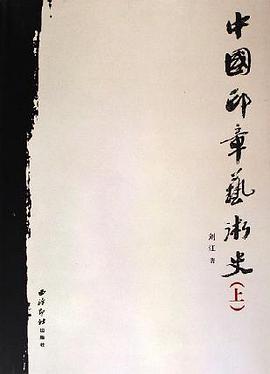 中國印章藝術史(上)
刘江 著
西泠印社
出版社